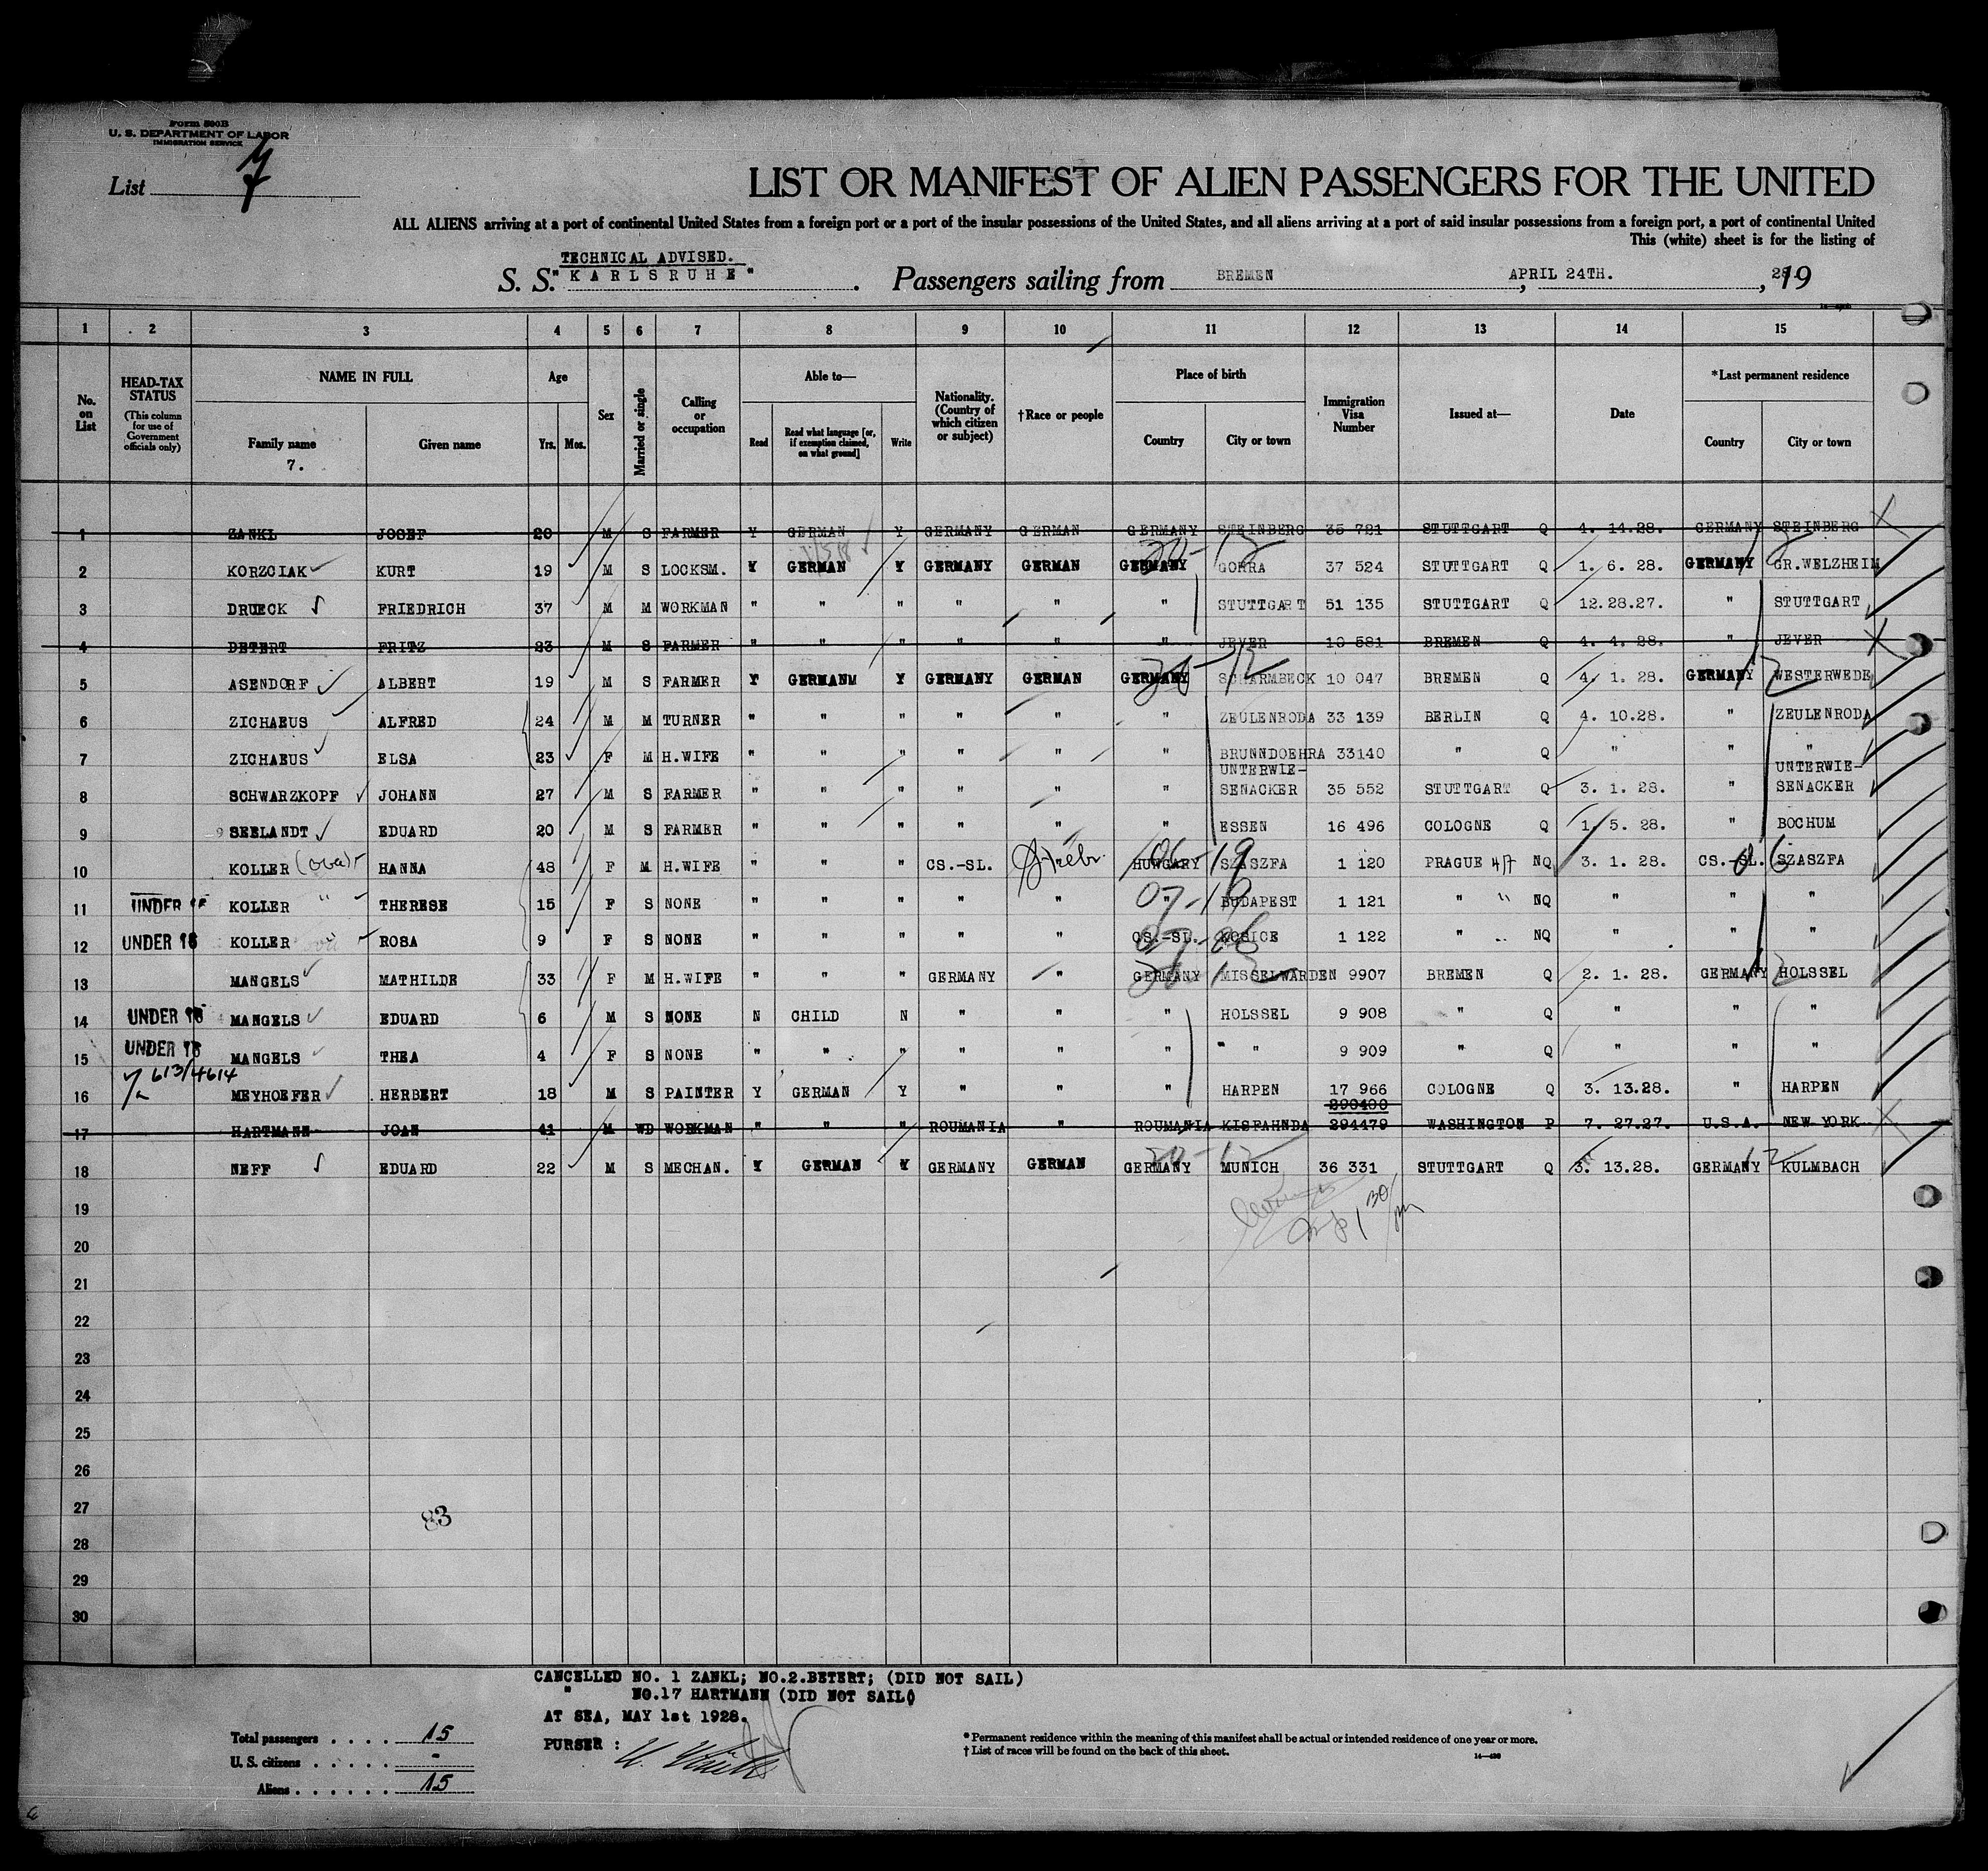 Form 500B
U. S. DEPARTMENT OF LABOR
IMMIGRATION SERVICE
List 7
LIST OR MANIFEST OF ALIEN PASSENGERS FOR THE UNITED
ALL ALIENS arriving at a port of continental United States from a foreign port or a port of the insular possessions of the United States, and all aliens arriving at a port of said insular possessions from a foreign port, a port of continental United
This (white) sheet is for the listing of
TECHNICAL ADVISED.
S. S. "KARLSRUHE". Passengers sailing from BREMEN, APRIL 24TH., 1928
1 2 3 4 5 6 7 8 9 10 11 12 13 14 15
No. on List
HEAD-TAX STATUS (This column for use of Government officials only)
NAME IN FULL Family name Given name
7.
Age Yrs. Mos.
Sex
Married or single
Calling or occupation
Able to— Read Read what language [or, if exemption claimed, on what ground] Write
Nationality. (Country of which citizen or subject)
†Race or people
Place of birth Country City or town
Immigration Visa Number
Issued at—
Date
*Last permanent residence Country City or town
1 ZANKL JOSEF 20 M S FARMER Y GERMAN Y GERMANY GERMAN GERMANY STEINBERG 35 721 STUTTGART Q 4. 14.28. GERMANY STEINBERG X
20-12 2
2 KORZCIAK KURT 19 M S LOCKSM. Y GERMAN Y GERMANY GERMAN GERMANY GOHRA 37 524 STUTTGART Q 1. 6. 28. GERMANY GR.WELZHEIM
3 DRUECK FRIEDRICH 37 M M WORKMAN " " " " " " STUTTGART 51 135 STUTTGART Q 12.28.27. " STUTTGART
4 DETERT FRITZ 23 M S FARMER " " " " " " JEVER 10 581 BREMEN Q 4. 4. 28. " JEVER X
5 ASENDORF ALBERT 19 M S FARMER Y GERMANM Y GERMANY GERMAN GERMANY SCHARMBECK 10 047 BREMEN Q 4. 1. 28. GERMANY WESTERWEDE
6 ZICHAEUS ALFRED 24 M M TURNER " " " " " " ZEULENRODA 33 139 BERLIN Q 4. 10.28. " ZEULENRODA
7 ZICHAEUS ELSA 23 F M H.WIFE " " " " " " BRUNNDOEHRA 33140 " Q " " "
UNTERWIE- UNTERWIE-
8 SCHWARZKOPF JOHANN 27 M S FARMER " " " " " " SENACKER 35 552 STUTTGART Q 3. 1. 28. " SENACKER
9 SEELANDT EDUARD 20 M S FARMER " " " " " " ESSEN 16 496 COLOGNE Q 1. 5. 28. " BOCHUM
10 KOLLER HANNA 48 F M H.WIFE " " " CS.-SL. Hebr. HUNGARY SZASZFA 1 120 PRAGUE NQ 3. 1. 28. CS.-SL. SZASZFA
11 UNDER KOLLER " THERESE 15 F S NONE " " " " " " BUDAPEST 1 121 " NQ " " "
12 UNDER 16 KOLLER ROSA 9 F S NONE " " " " " CS.-SL. KOSICE 1 122 " NQ " " "
13 MANGELS MATHILDE 33 F M H.WIFE " " " GERMANY " GERMANY MISSELWARDEN 9907 BREMEN Q 2. 1. 28. GERMANY HOLSSEL
14 UNDER 16 MANGELS EDUARD 6 M S NONE N CHILD N " " " HOLSSEL 9 908 " Q " " "
15 UNDER 16 MANGELS THEA 4 F S NONE " " " " " " " " 9 909 " Q " " "
613/4614
16 MEYHOEFER HERBERT 18 M S PAINTER Y GERMAN Y " " " HARPEN 17 966 COLOGNE Q 3. 13.28. " HARPEN
290400
17 HARTMANN JOAN 41 M WD WORKMAN " " " ROUMANIA " ROUMANIA KISFAHNDA 294479 WASHINGTON P 7. 27.27. U.S.A. NEW YORK X
18 NEFF EDUARD 22 M S MECHAN. Y GERMAN Y GERMANY GERMAN GERMANY MUNICH 36 331 STUTTGART Q 3. 13.28. GERMANY KULMBACH
19
20
21
22
23
24
25
26
27
83
28
29
30
CANCELLED NO. 1 ZANKL; NO.2.BETERT; (DID NOT SAIL)
" NO.17 HARTMANN (DID NOT SAIL)
AT SEA, MAY 1st 1928.
PURSER :
Total passengers . . . . 15
U. S. citizens . . . . . -
Aliens . . . . . . 15
* Permanent residence within the meaning of this manifest shall be actual or intended residence of one year or more.
† List of races will be found on the back of this sheet.